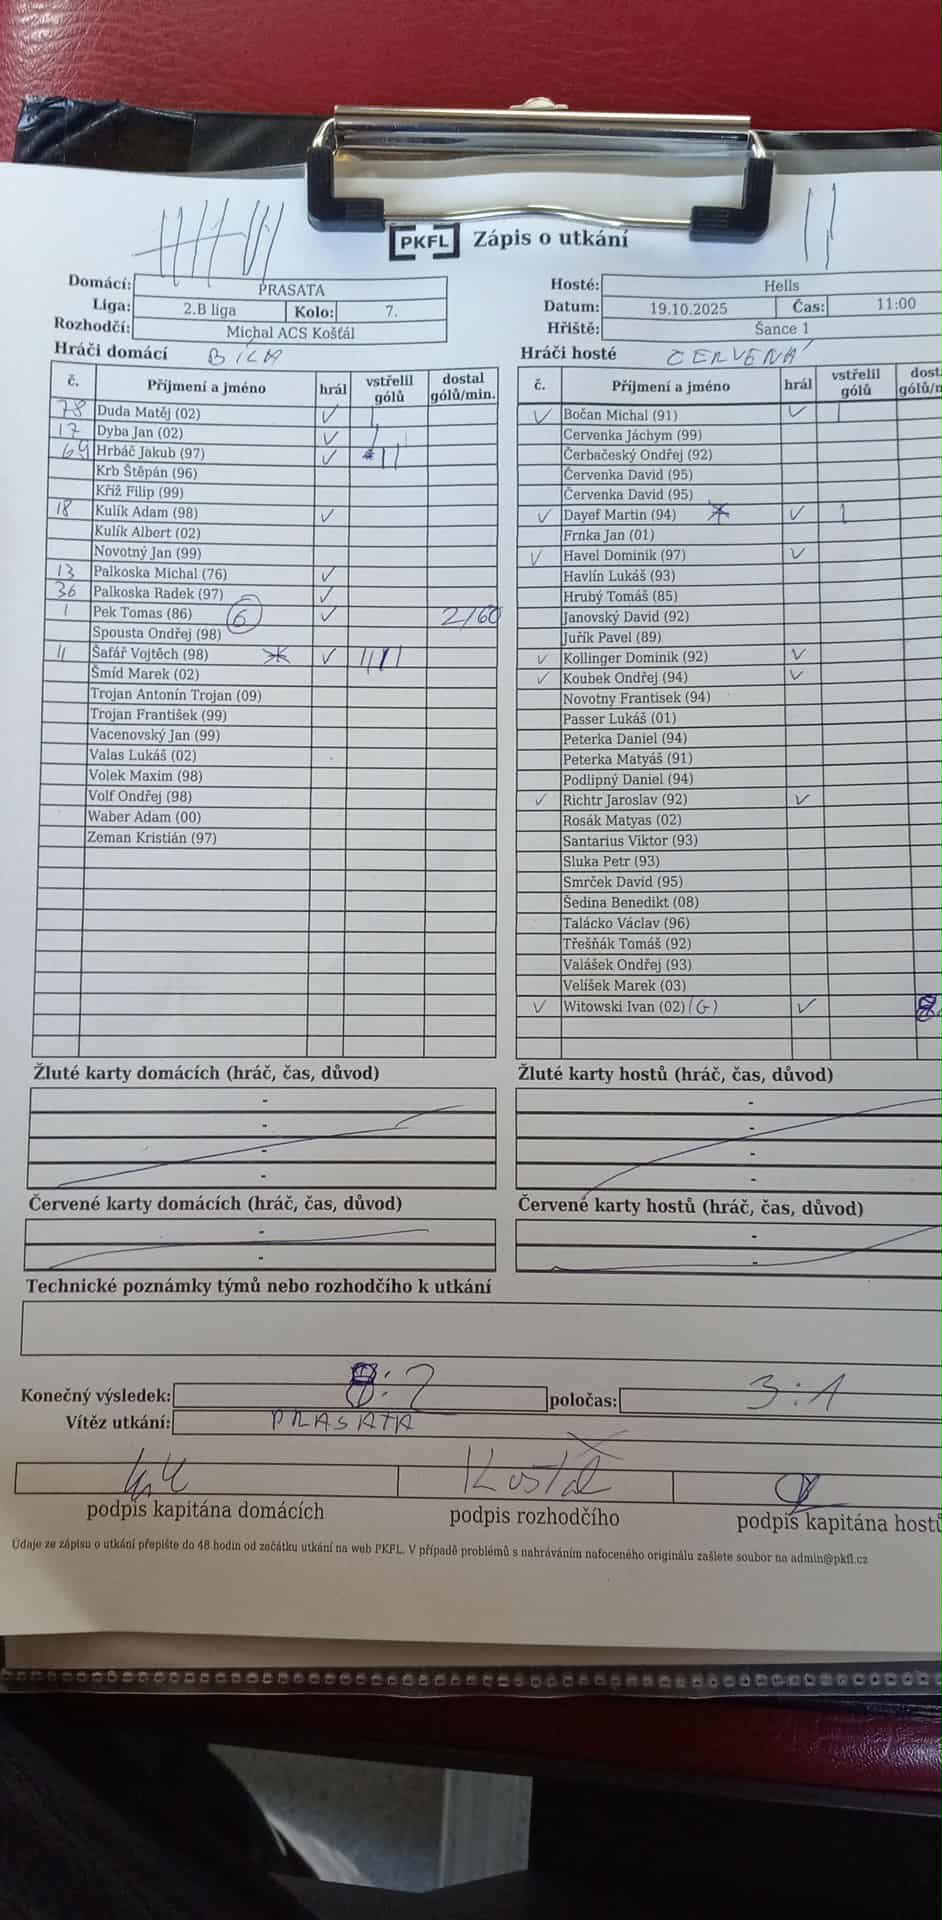 PKFL Zápis o utkání
Domácí: PRASATA
Liga: 2.B liga Kolo: 7.
Rozhodčí: Michal ACS Košťál
Hosté: Hells
Datum: 19.10.2025 Čas: 11:00
Hřiště: Šance 1
Hráči domácí BÍLÁ
č. Příjmení a jméno hrál vstřelil gólů dostal gólů/min.
78 Duda Matěj (02) ✓ |
17 Dyba Jan (02) ✓ |
69 Hrbáč Jakub (97) ✓ ||
Krb Štěpán (96)
Kříž Filip (99)
18 Kulík Adam (98) ✓
Kulík Albert (02)
Novotný Jan (99)
13 Palkoska Michal (76) ✓
36 Palkoska Radek (97) ✓
1 Pek Tomas (86) G ✓ 2/60
Spousta Ondřej (98)
11 Šafář Vojtěch (98) ✓ ||||
Šmíd Marek (02)
Trojan Antonín Trojan (09)
Trojan František (99)
Vacenovský Jan (99)
Valas Lukáš (02)
Volek Maxim (98)
Volf Ondřej (98)
Waber Adam (00)
Zeman Kristián (97)
Hráči hosté ČERVENÁ
č. Příjmení a jméno hrál vstřelil gólů dost. gólů/m
✓ Bočan Michal (91) ✓ |
Cervenka Jáchym (99)
Čerbačeský Ondřej (92)
Červenka David (95)
Červenka David (95)
✓ Dayef Martin (94) ✓ |
Frnka Jan (01)
✓ Havel Dominik (97) ✓
Havlín Lukáš (93)
Hrubý Tomáš (85)
Janovský David (92)
Juřík Pavel (89)
✓ Kollinger Dominik (92) ✓
✓ Koubek Ondřej (94) ✓
Novotny Frantisek (94)
Passer Lukáš (01)
Peterka Daniel (94)
Peterka Matyáš (91)
Podlipný Daniel (94)
✓ Richtr Jaroslav (92) ✓
Rosák Matyas (02)
Santarius Viktor (93)
Sluka Petr (93)
Smrček David (95)
Šedina Benedikt (08)
Talácko Václav (96)
Třešňák Tomáš (92)
Valášek Ondřej (93)
Velíšek Marek (03)
✓ Witowski Ivan (02) (G) ✓ 8
Žluté karty domácích (hráč, čas, důvod)
-
-
-
-
Žluté karty hostů (hráč, čas, důvod)
-
-
-
-
Červené karty domácích (hráč, čas, důvod)
-
-
Červené karty hostů (hráč, čas, důvod)
-
-
Technické poznámky týmů nebo rozhodčího k utkání
Konečný výsledek: 8:2 poločas: 3:1
Vítěz utkání: PRASATA
Košťál
podpis kapitána domácích podpis rozhodčího podpis kapitána hostů
Údaje ze zápisu o utkání přepište do 48 hodin od začátku utkání na web PKFL. V případě problémů s nahráváním nafoceného originálu zašlete soubor na admin@pkfl.cz